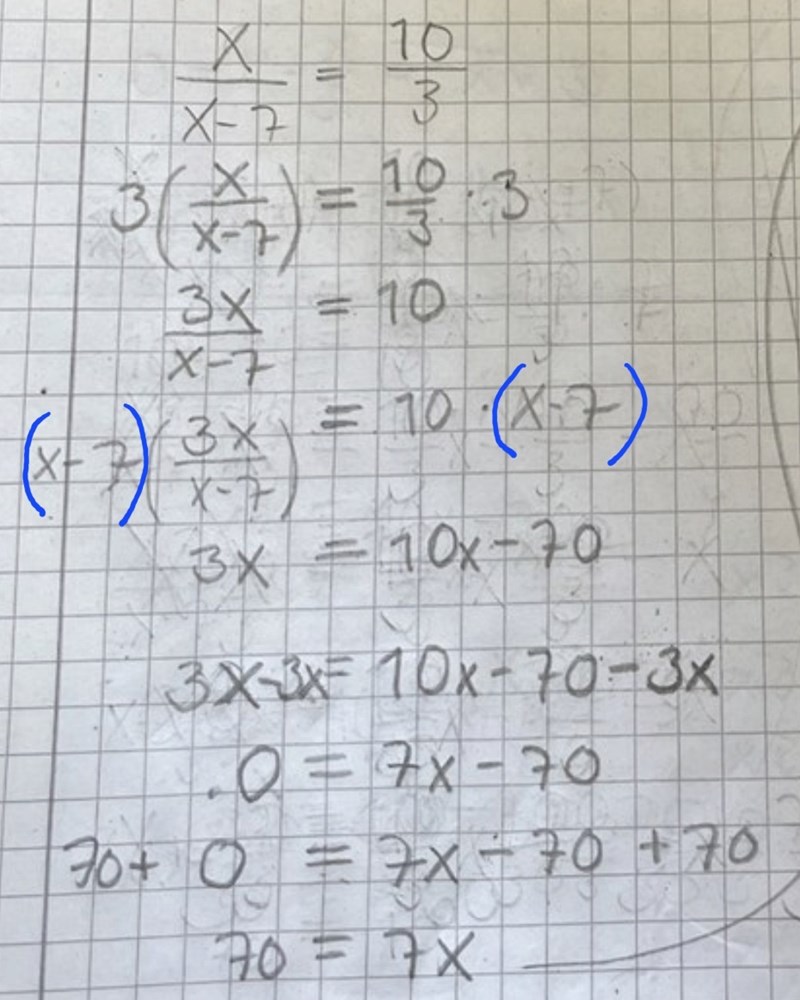 x/(x-7) = 10/3
3(x/(x-7)) = 10/3 · 3
3x/(x-7) = 10
(x-7)(3x/(x-7)) = 10 · (x-7)
3x = 10x-70
3x-3x= 10x-70-3x
.0 = 7x-70
70+ 0 = 7x-70 +70
70 = 7x